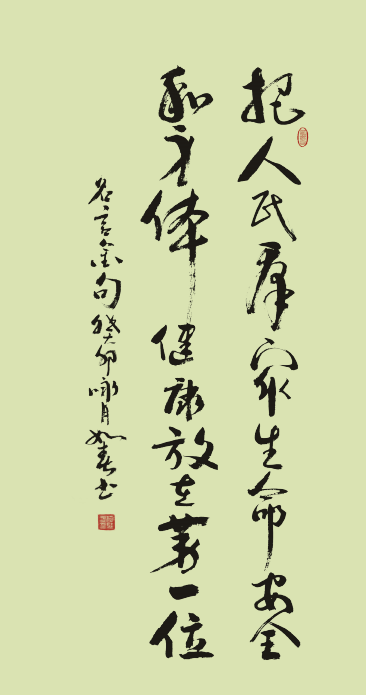 把人民群眾生命安全
和身体健康放在第一位
名言金句癸卯咏月如春书